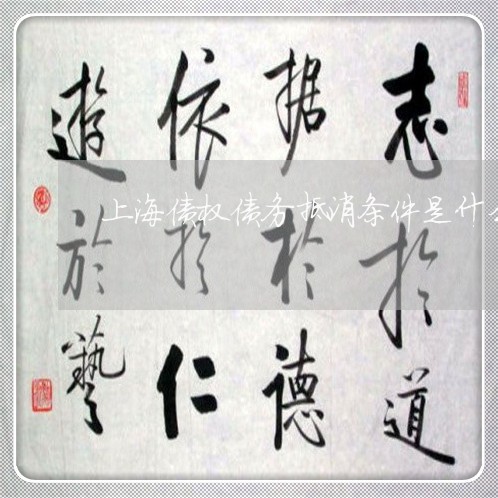 志於道
据於德
依於仁
遊於藝
上海债权债务抵消条件是什